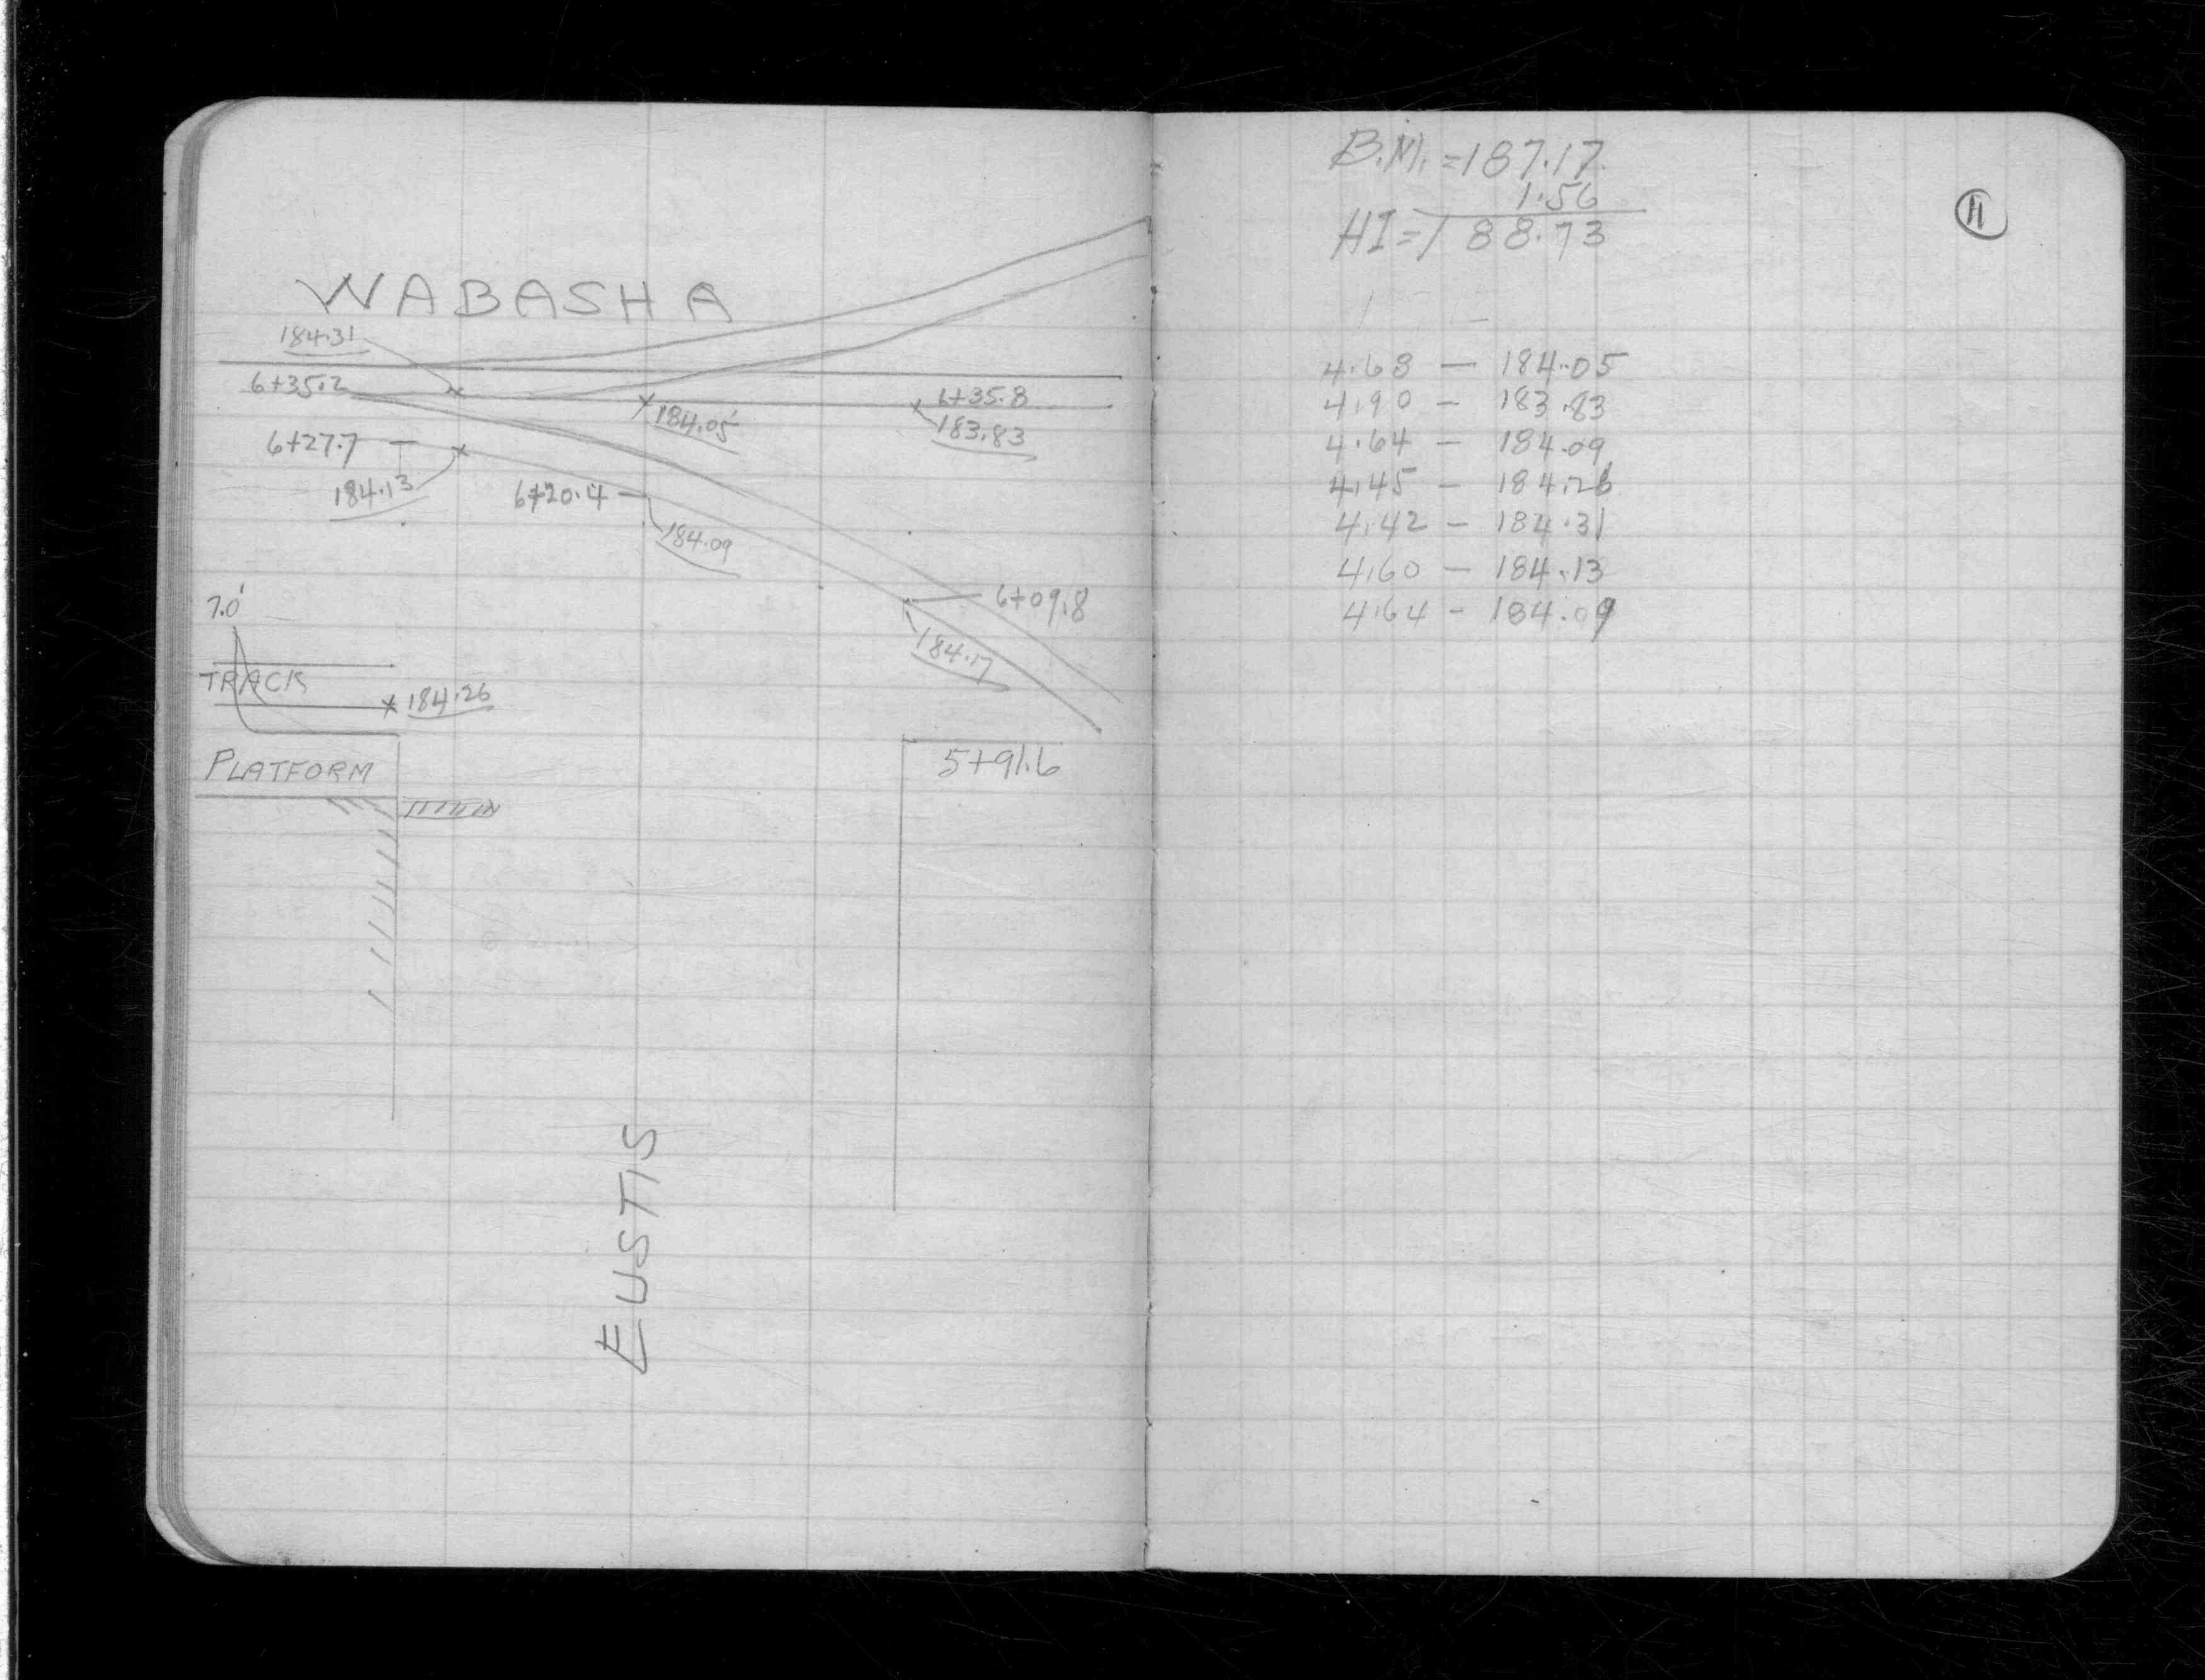 WABASHA
184.31
6+35.2
6+35.8
184.05
183.83
6+27.7
184.13
6+20.4
184.09
6+09.8
184.17
7.0'
TRACK
184.26
PLATFORM
5+91.6
EUSTIS
B.M. = 187.17
1.56
HI = 188.73
11
4.68 — 184.05
4.90 — 183.83
4.64 — 184.09
4.45 — 184.28
4.42 — 184.31
4.60 — 184.13
4.64 - 184.09